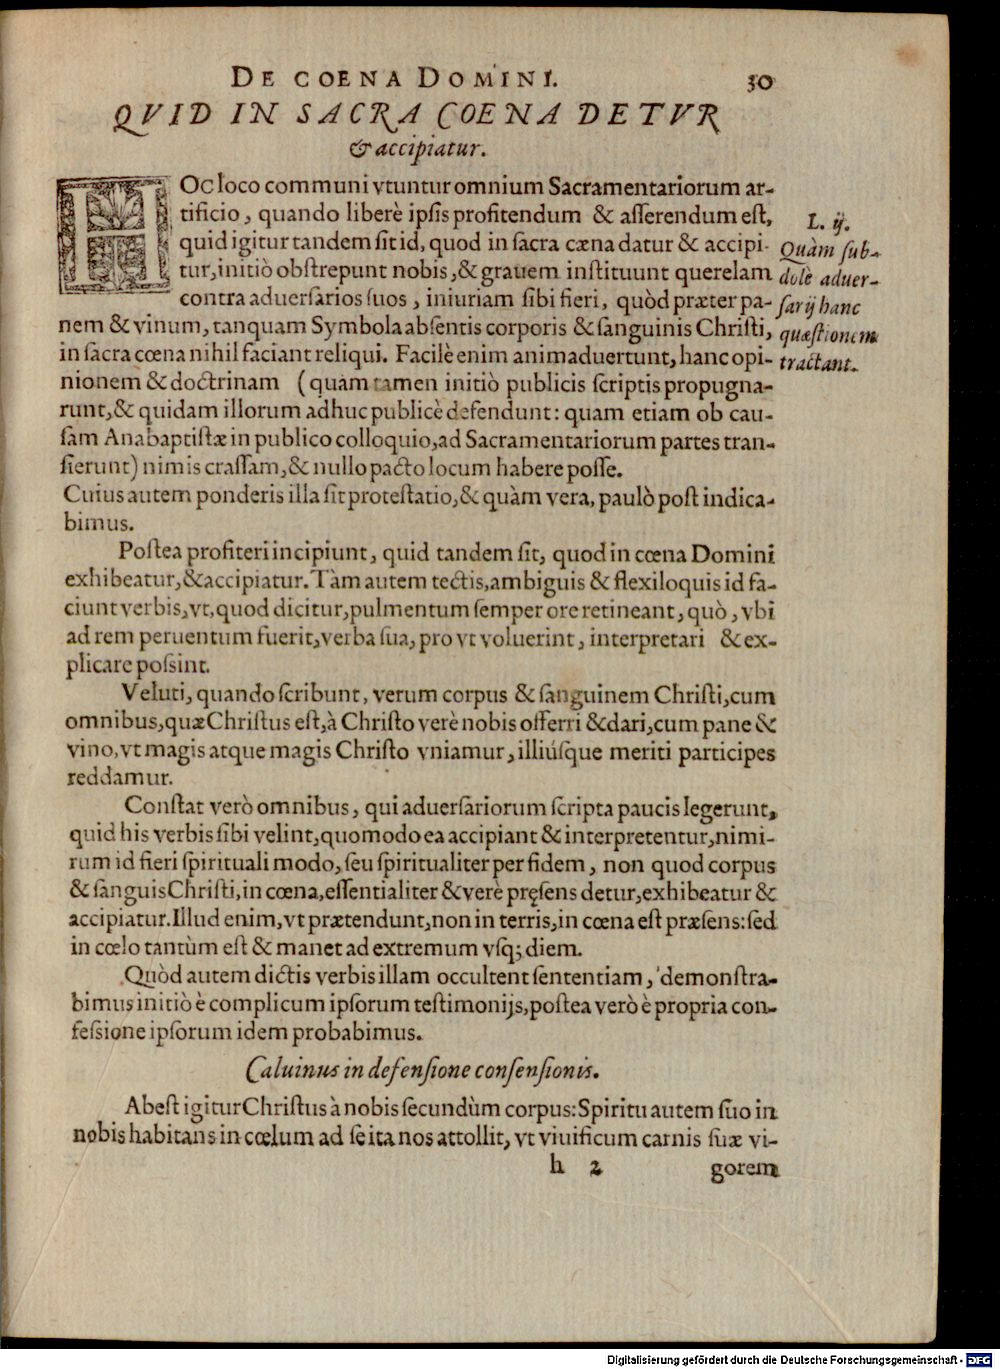 DE COENA DOMINI. 30
QVID IN SACRA COENA DETVR
& accipiatur.
HOC loco communi vtuntur omnium Sacramentariorum ar-
tificio, quando liberè ipsis profitendum & asserendum est,
quid igitur tandem sit id, quod in sacra cæna datur & accipi-
tur, initiò obstrepunt nobis, & grauem instituunt querelam
contra aduersarios suos, iniuriam sibi fieri, quòd præter pa-
nem & vinum, tanquam Symbola absentis corporis & sanguinis Christi,
in sacra cœna nihil faciant reliqui. Facilè enim animaduertunt, hanc opi-
nionem & doctrinam (quam tamen initiò publicis scriptis propugna-
runt, & quidam illorum adhuc publicè defendunt: quam etiam ob cau-
sam Anabaptistæ in publico colloquio, ad Sacramentariorum partes tran-
sierunt) nimis crassam, & nullo pacto locum habere posse.
Cuius autem ponderis illa sit protestatio, & quàm vera, paulò post indica-
bimus.
L. ij.
Quàm sub-
dolè aduer-
sarij hanc
quæstionem
tractant.
Postea profiteri incipiunt, quid tandem sit, quod in cœna Domini
exhibeatur, & accipiatur. Tàm autem tectis, ambiguis & flexiloquis id fa-
ciunt verbis, vt, quod dicitur, pulmentum semper ore retineant, quò, vbi
ad rem peruentum fuerit, verba sua, pro vt voluerint, interpretari & ex-
plicare possint.
Veluti, quando scribunt, verum corpus & sanguinem Christi, cum
omnibus, quæ Christus est, à Christo verè nobis offerri & dari, cum pane &
vino, vt magis atque magis Christo vniamur, illiúsque meriti participes
reddamur.
Constat verò omnibus, qui aduersariorum scripta paucis legerunt,
quid his verbis sibi velint, quomodo ea accipiant & interpretentur, nimi-
rum id fieri spirituali modo, seu spiritualiter per fidem, non quod corpus
& sanguis Christi, in cœna, essentialiter & verè pręsens detur, exhibeatur &
accipiatur. Illud enim, vt prætendunt, non in terris, in cœna est præsens: sed
in cœlo tantùm est & manet ad extremum vsq; diem.
Quòd autem dictis verbis illam occultent sententiam, demonstra-
bimus initiò è complicum ipsorum testimonijs, postea verò è propria con-
fessione ipsorum idem probabimus.
Caluinus in defensione consensionis.
Abest igitur Christus à nobis secundùm corpus: Spiritu autem suo in
nobis habitans in cœlum ad se ita nos attollit, vt viuificum carnis suæ vi-
h 2 gorem
Digitalisierung gefördert durch die Deutsche Forschungsgemeinschaft - DFG